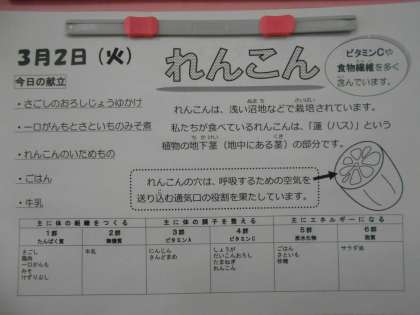 3月2日(火)
れんこん
ビタミンCや
食物繊維を多く
含んでいます。
今日の献立
・さごしのおろしじょうゆかけ
・一口がんもとさといものみそ煮
・れんこんのいためもの
・ごはん
・牛乳
れんこんは、浅い沼地などで栽培されています。
私たちが食べているれんこんは、「蓮(ハス)」という
植物の地下茎(地中にある茎)の部分です。
れんこんの穴は、呼吸するための空気を
送り込む通気口の役割を果たしています。
主に体の組織をつくる 主に体の調子を整える 主にエネルギーになる
1群 2群 3群 4群 5群 6群
たんぱく質 無機質 ビタミンA ビタミンC 炭水化物 脂質
さごし 牛乳 にんじん しょうが ごはん サラダ油
鶏肉 さんどまめ だいこんおろし さといも
一口がんも たまねぎ 砂糖
みそ れんこん
けずりぶし